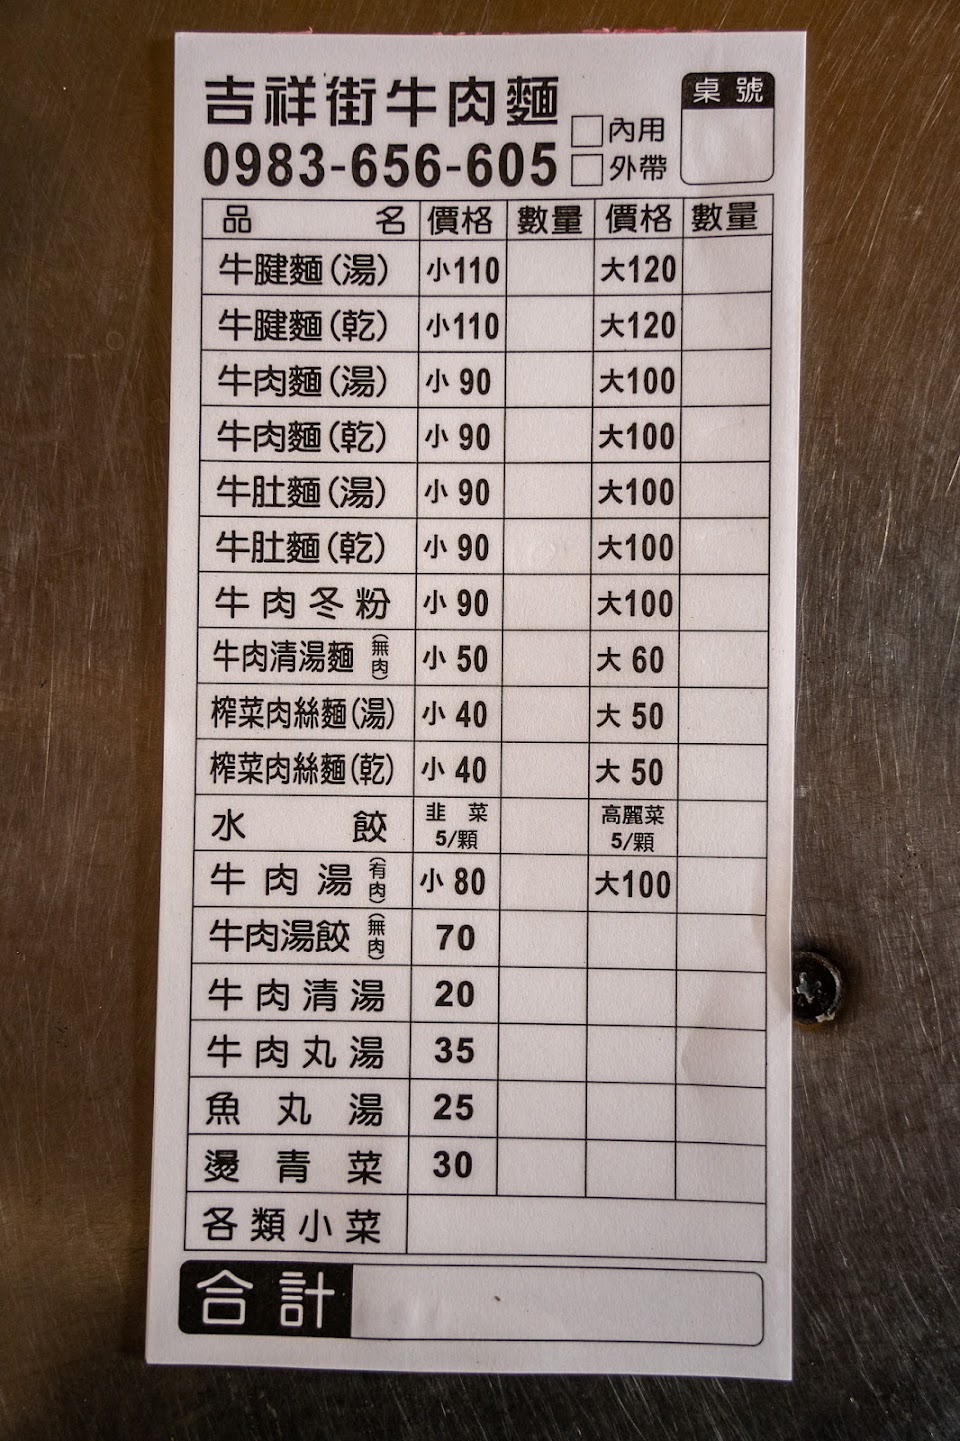 吉祥街牛肉麵
0983-656-605
內用
外帶
桌號
品名 價格 數量 價格 數量
牛腱麵(湯) 小110 大120
牛腱麵(乾) 小110 大120
牛肉麵(湯) 小 90 大100
牛肉麵(乾) 小 90 大100
牛肚麵(湯) 小 90 大100
牛肚麵(乾) 小 90 大100
牛肉冬粉 小 90 大100
牛肉清湯麵(無肉) 小 50 大 60
榨菜肉絲麵(湯) 小 40 大 50
榨菜肉絲麵(乾) 小 40 大 50
水餃 韭菜 5/顆 高麗菜 5/顆
牛肉湯(有肉) 小 80 大100
牛肉湯餃(無肉) 70
牛肉清湯 20
牛肉丸湯 35
魚丸湯 25
燙青菜 30
各類小菜
合計